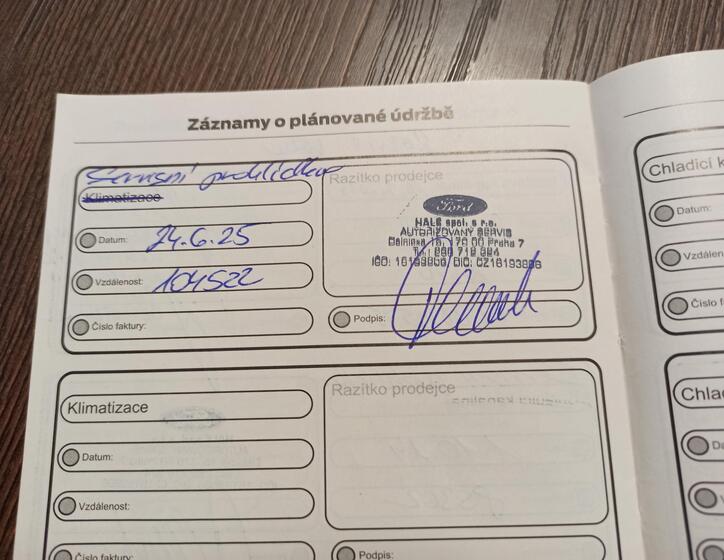 Záznamy o plánované údržbě
servisní prohlídka
Klimatizace
Datum: 24.6.25
Vzdálenost: 104522
Číslo faktury:
Razítko prodejce
Ford
HALE spol. s r.o.
AUTORIZOVANÝ SERVIS
170 00 Praha 7
Podpis:
Klimatizace
Datum:
Vzdálenost:
Číslo faktury:
Razítko prodejce
Podpis:
Chladicí k
Datum:
Vzdálen
Číslo f
Chla
Da